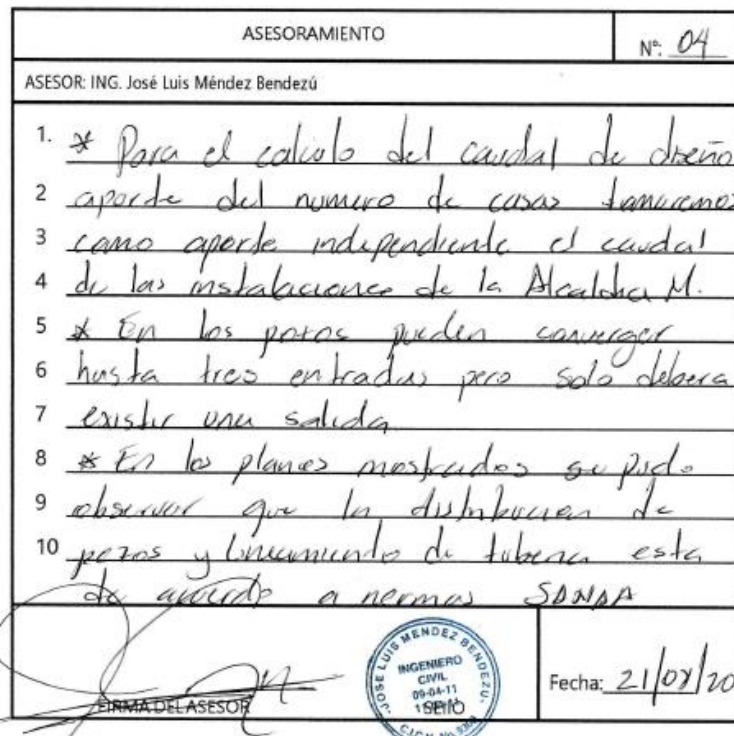 ASESORAMIENTO
Nº: 04
ASESOR: ING. José Luis Méndez Bendezú
1. * Para el calculo del caudal de diseño
2 aporte del numero de casas tomaremos
3 como aporte independiente el caudal
4 de las instalaciones de la Alcaldia M.
5 * En los pozos pueden converger
6 hasta tres entradas pero solo debera
7 existir una salida
8 * En los planos mostrados se pudo
9 observar que la distribucion de
10 pozos y lineamiento de tuberia esta
de acuerdo a normas
FIRMA DEL ASESOR
JOSE LUIS MENDEZ BENDEZU
INGENIERO
CIVIL
09-04-11
SELLO
Fecha: 21/08/20